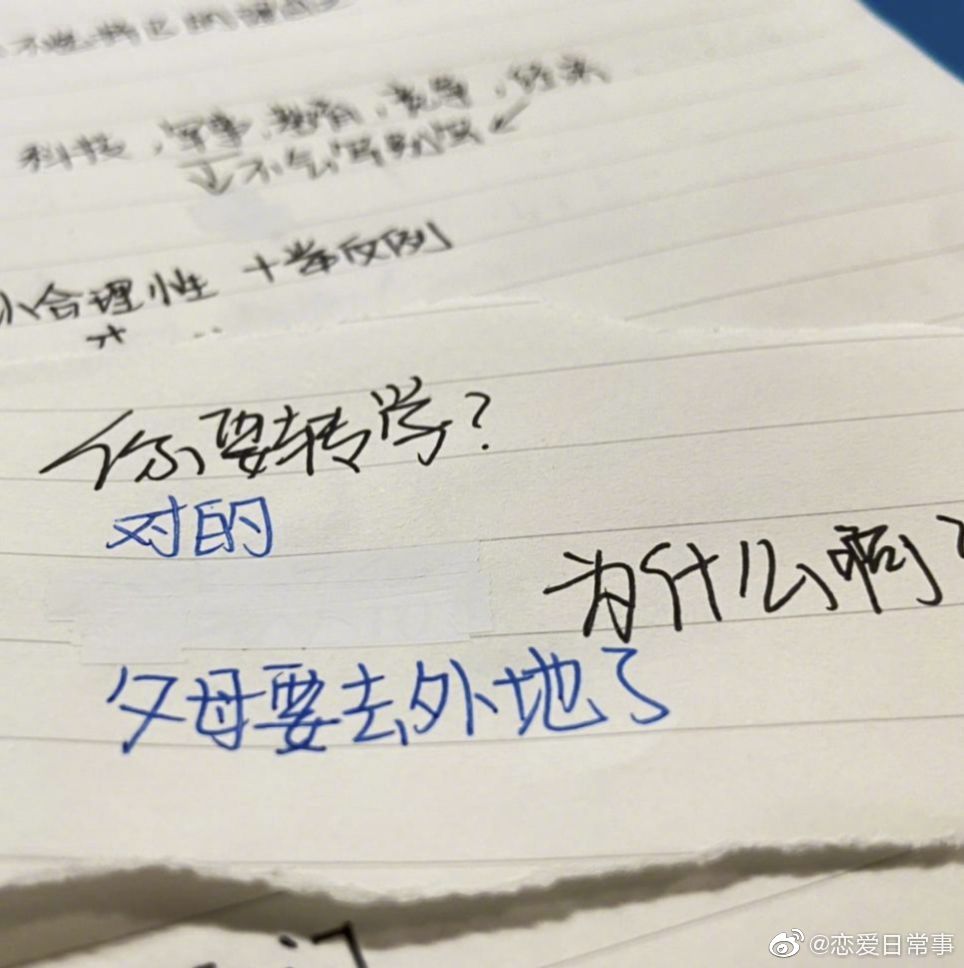 科技，军事，教育，竞争，经济
↓不会写别写↙
合理性 + 举反例
你要转学？
对的
为什么啊？
父母要去外地了
@恋爱日常事